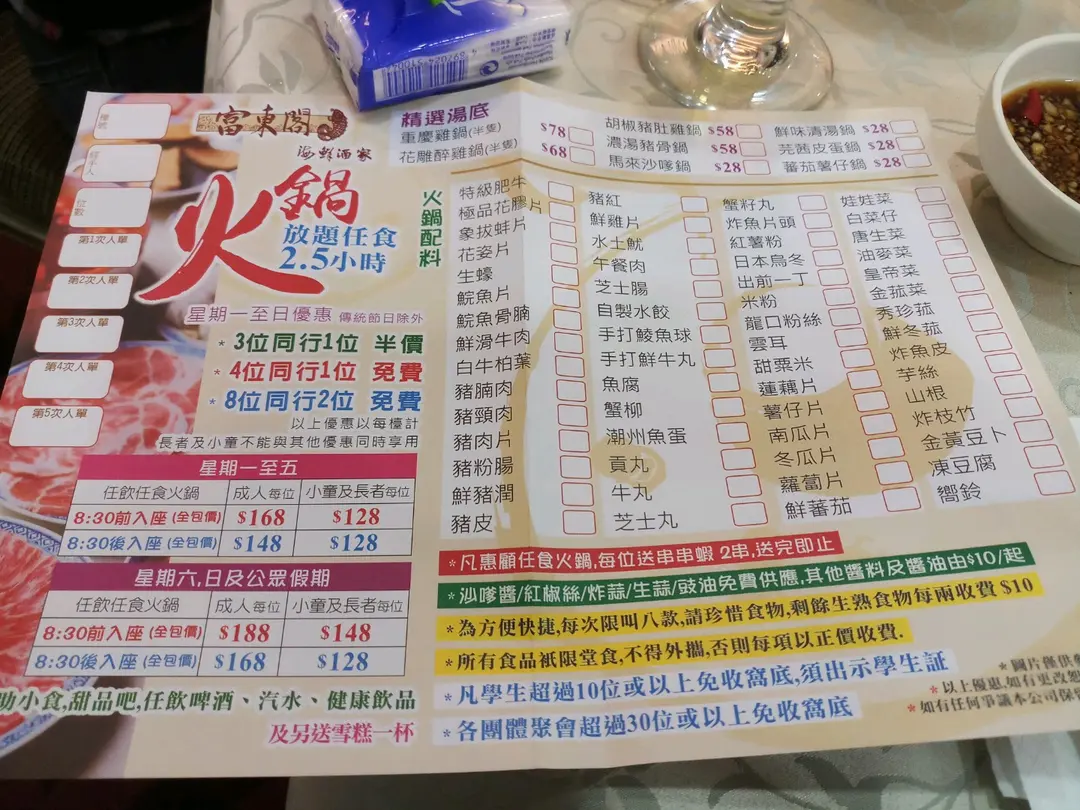 富東閣
海鮮酒家
火鍋
放題任食
2.5小時
星期一至日優惠 傳統節日除外
* 3位同行1位 半價
* 4位同行1位 免費
* 8位同行2位 免費
以上優惠以每檯計
長者及小童不能與其他優惠同時享用
第1次人單
第2次人單
第3次人單
第4次人單
第5次人單
星期一至五
任飲任食火鍋 成人每位 小童及長者每位
8:30前入座 (全包價) $168 $128
8:30後入座 (全包價) $148 $128
星期六,日及公眾假期
任飲任食火鍋 成人每位 小童及長者每位
8:30前入座 (全包價) $188 $148
8:30後入座 (全包價) $168 $128
助小食,甜品吧,任飲啤酒、汽水、健康飲品
及另送雪糕一杯
精選湯底
重慶雞鍋(半隻) $78
花雕醉雞鍋(半隻) $68
胡椒豬肚雞鍋 $58
濃湯豬骨鍋 $58
馬來沙嗲鍋 $28
鮮味清湯鍋 $28
芫茜皮蛋鍋 $28
蕃茄薯仔鍋 $28
火鍋配料
特級肥牛
極品花膠片
象拔蚌片
花姿片
生蠔
鯇魚片
鯇魚骨腩
鮮滑牛肉
白牛柏葉
豬腩肉
豬頸肉
豬肉片
豬粉腸
鮮豬潤
豬皮
豬紅
鮮雞片
水土魷
午餐肉
芝士腸
自製水餃
手打鯪魚球
手打鮮牛丸
魚腐
蟹柳
潮州魚蛋
貢丸
牛丸
芝士丸
蟹籽丸
炸魚片頭
紅薯粉
日本烏冬
出前一丁
米粉
龍口粉絲
雲耳
甜粟米
蓮藕片
薯仔片
南瓜片
冬瓜片
蘿蔔片
鮮蕃茄
娃娃菜
白菜仔
唐生菜
油麥菜
皇帝菜
金菇菜
秀珍菇
鮮冬菇
炸魚皮
芋絲
山根
炸枝竹
金黃豆卜
凍豆腐
嚮鈴
*凡惠顧任食火鍋,每位送串串蝦 2串,送完即止
*沙嗲醬/紅椒絲/炸蒜/生蒜/豉油免費供應,其他醬料及醬油由$10/起
*為方便快捷,每次限叫八款,請珍惜食物,剩餘生熟食物每兩收費 $10
*所有食品祇限堂食,不得外攜,否則每項以正價收費.
*凡學生超過10位或以上免收窩底,須出示學生証
*各團體聚會超過30位或以上免收窩底
*圖片僅供
*以上優惠,如有更改恕
*如有任何爭議本公司保